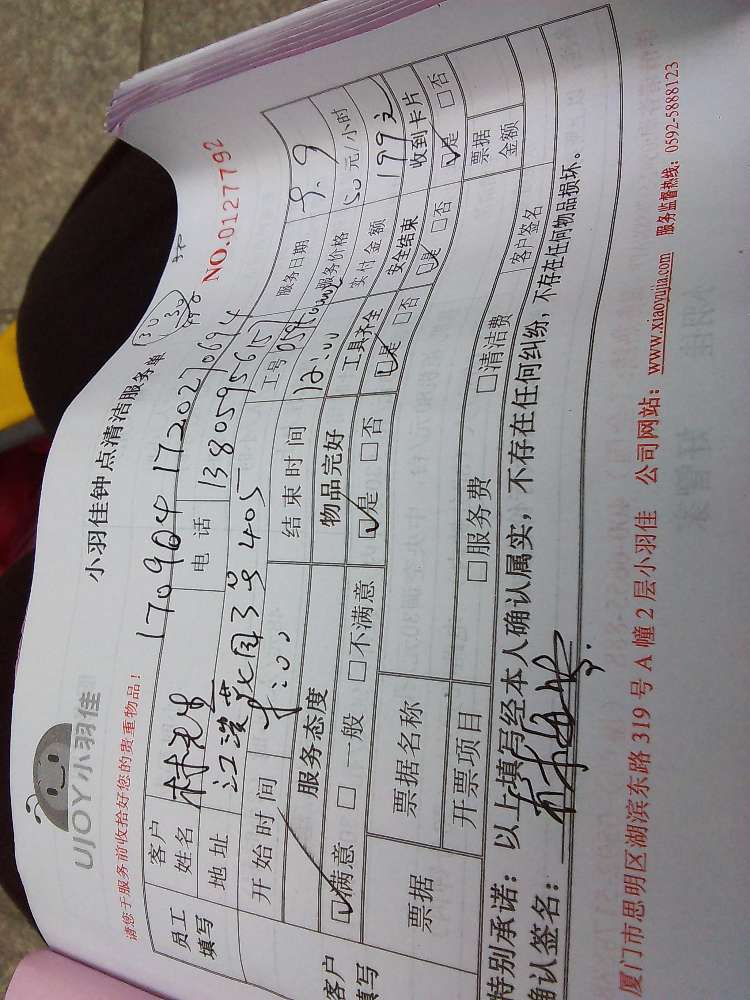 UJOY小羽佳
小羽佳钟点清洁服务单
请您于服务前收拾好您的贵重物品！
NO.0127792
员工填写
客户姓名 林先生
电话 13805956151
地址 江滨花园3号405
工号
服务日期 9.9
开始时间
结束时间 12:00
服务价格 50元/小时
实付金额 199元
客户填写
服务态度 物品完好 工具齐全 安全结束 收到卡片
☑满意 □一般 □不满意 ☑是 □否 ☑是 □否 ☑是 □否 ☑是 □否
票据
票据名称
票据金额
开票项目 □服务费 □清洁费
客户签名
特别承诺：以上填写经本人确认属实，不存在任何纠纷，不存在任何物品损坏。
确认签名：
厦门市思明区湖滨东路319号A幢2层小羽佳 公司网站：www.xiaoyujia.com 服务监督热线：0592-5888123